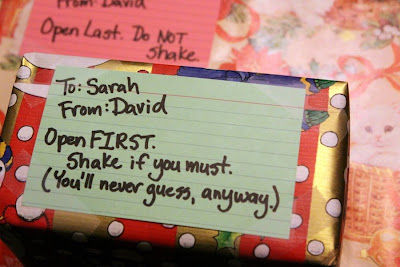 From: David
Open Last. Do NOT
shake.
To: Sarah
From: David
Open FIRST.
Shake if you must.
(You'll never guess, anyway.)